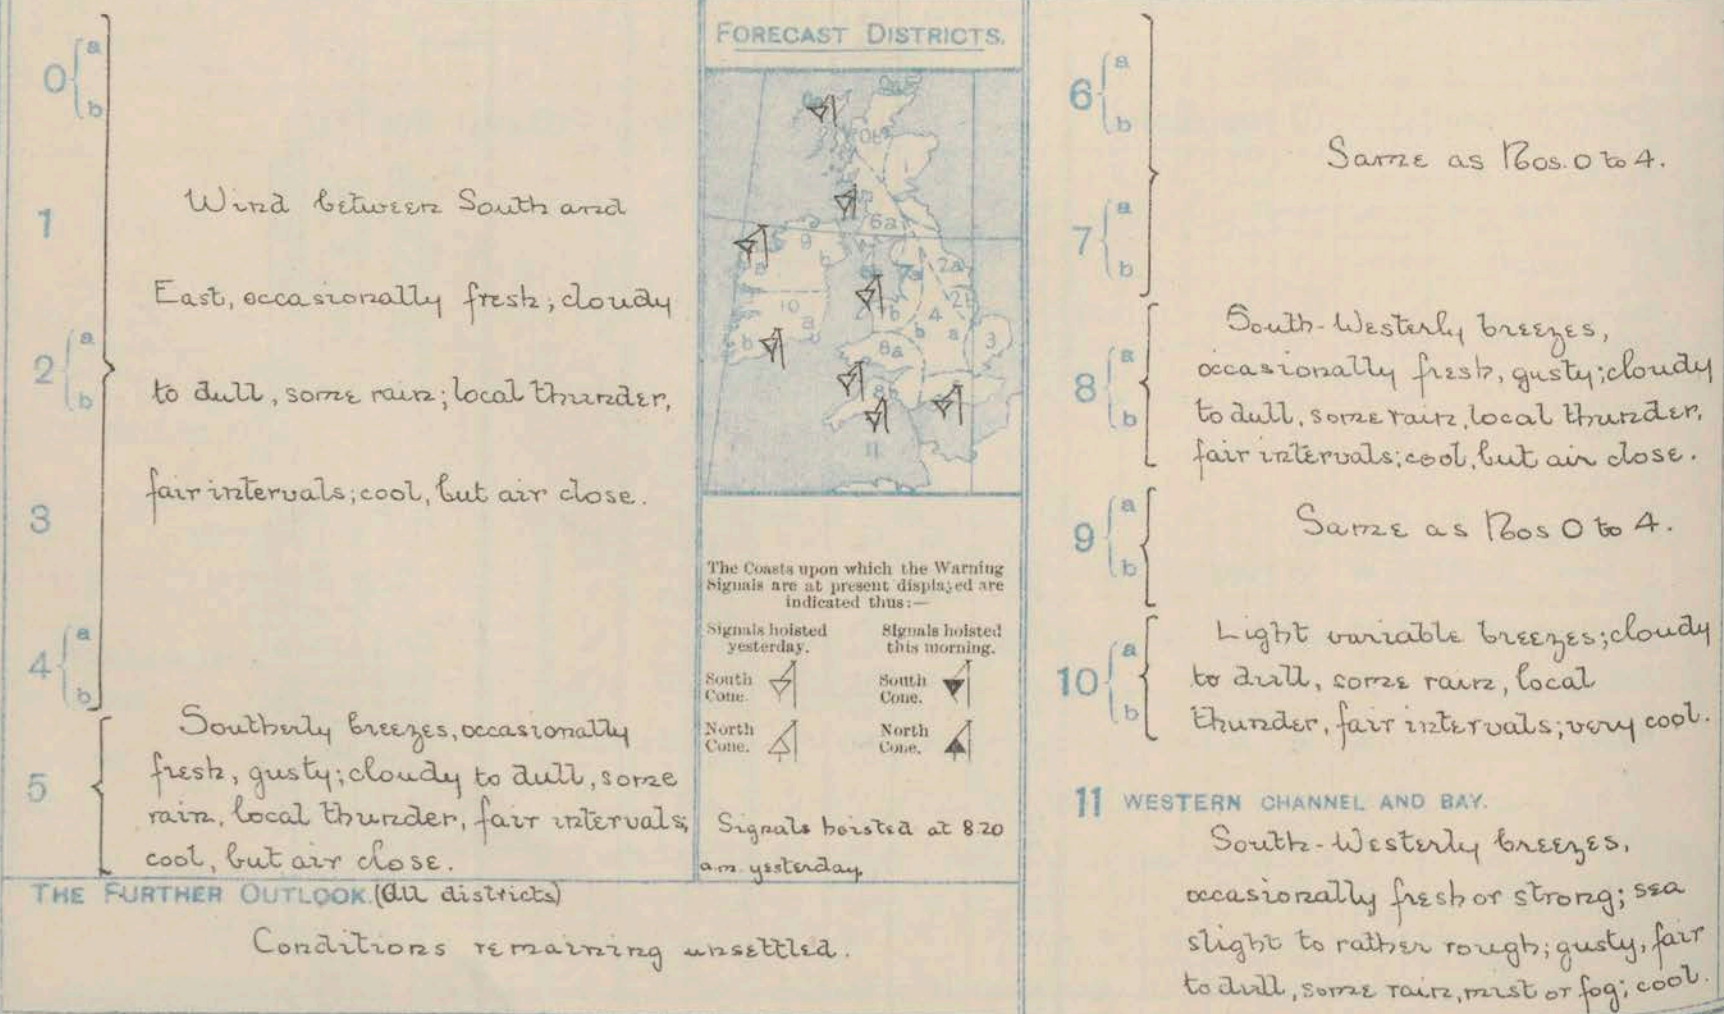 0 { a
b
1
2 { a
b
3
4 { a
b
Wind between South and
East, occasionally fresh; cloudy
to dull, some rain; local thunder,
fair intervals; cool, but air close.
5
Southerly breezes, occasionally
fresh, gusty; cloudy to dull, some
rain, local thunder, fair intervals;
cool, but air close.
THE FURTHER OUTLOOK. (All districts)
Conditions remaining unsettled.
FORECAST DISTRICTS.
0b
6a
9
b
7a
2a
10
a
b
b
4
2b
b
a
3
8a
8b
11
The Coasts upon which the Warning
Signals are at present displayed are
indicated thus:—
Signals hoisted
yesterday.
Signals hoisted
this morning.
South
Cone.
South
Cone.
North
Cone.
North
Cone.
Signals hoisted at 8.20
a.m. yesterday.
6 { a
b
7 { a
b
Same as Nos. 0 to 4.
8 { a
b
South-Westerly breezes,
occasionally fresh, gusty; cloudy
to dull, some rain, local thunder,
fair intervals; cool, but air close.
9 { a
b
Same as Nos 0 to 4.
10 { a
b
Light variable breezes; cloudy
to dull, some rain, local
thunder, fair intervals; very cool.
11 WESTERN CHANNEL AND BAY.
South-Westerly breezes,
occasionally fresh or strong; sea
slight to rather rough; gusty, fair
to dull, some rain, mist or fog; cool.